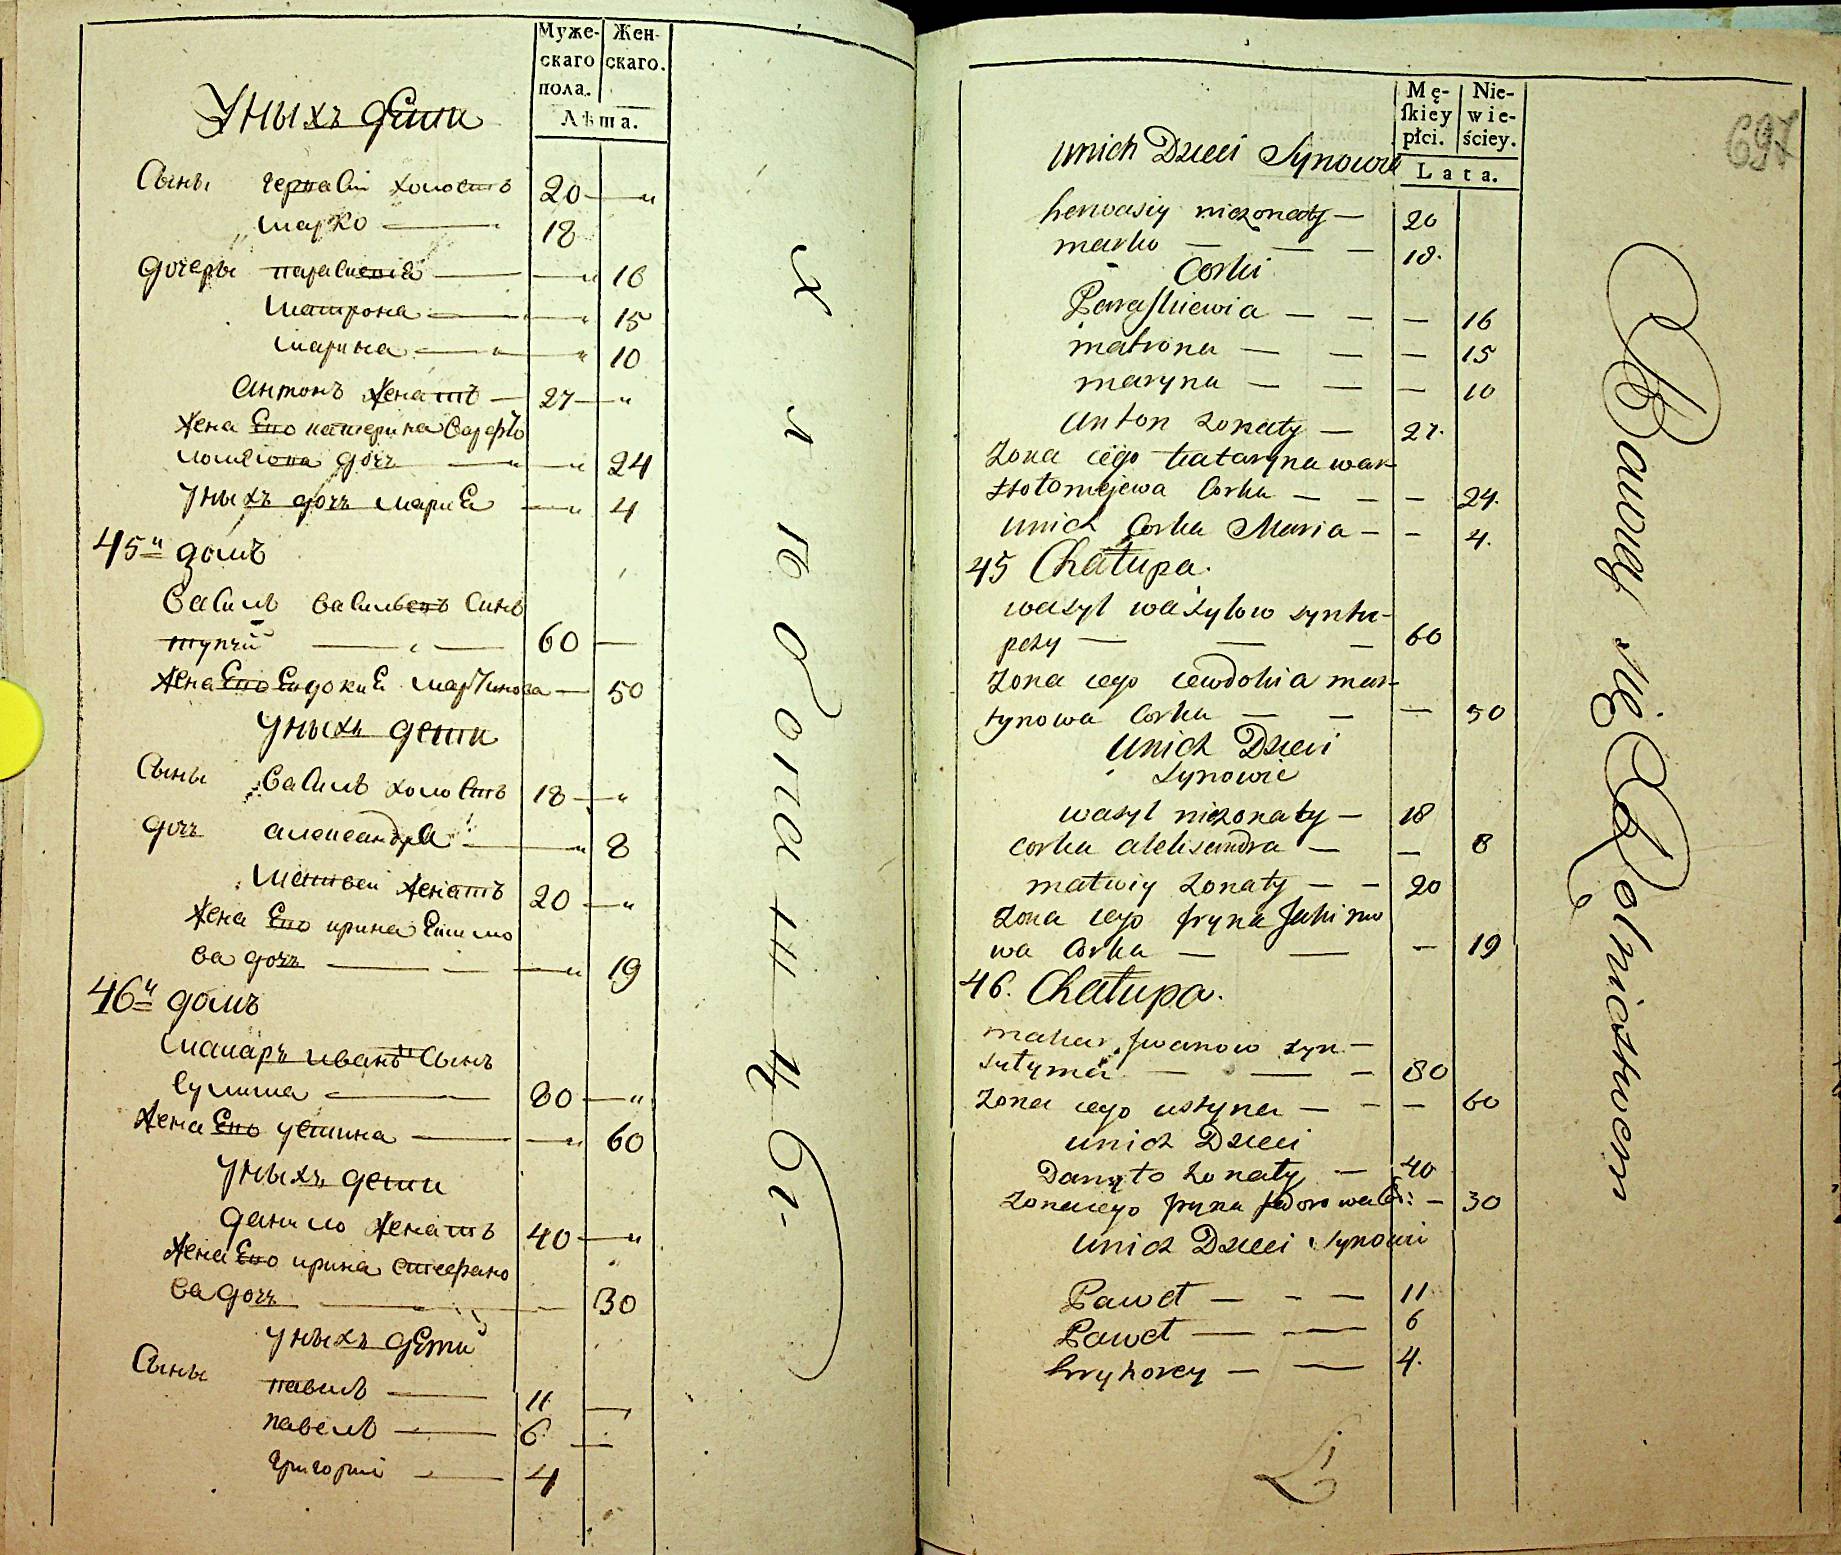 Муже-
скаго
пола.
Жен-
скаго.
Лѣта.
Уныхъ дети
Сыны гервасiй холостъ 20 — „
марко — 18
дочеры параскевiя — — „ 16
матрона — — „ 15
марина — „ — „ 10
антонъ женатъ — 27 — „
жена его катерина варфо
ломеова дочъ — „ — „ 24
Уныхъ дочъ мария — „ 4
45й домъ
василь васильевъ синъ
тупчiй — „ — 60 —
жена его евдокия мартинова — 50
Уныхъ дети
Сыны василь холостъ 18 — „
дочъ александра — — „ 8
матвей женатъ 20 — „
жена его ирина екимо
ва дочъ — — — „ 19
46й домъ
макаръ ивановъ сынъ
сулима — 80 — „
жена его устина — — „ 60
Уныхъ дети
данило женатъ 40 — „
жена его ирина
ва дочъ — — 30
Уныхъ дети
Сыны
павелъ — 11 —
павелъ — 6 —
григорий — 4
хлѣбопашцы.
Mę-
skiey
płci.
Nie-
wie-
ściey.
Lata.
697
unich Dzieci Synowie
herwasiy niezonaty — 20
marko — — — 18.
Corki
Paraskiewia — — — 16
matrona — — — 15
maryna — — — 10
anton zonaty — 27.
zona iego katarzyna war-
tłołomejewa Corka — — — 24.
unich Corka Maria — — 4.
45 Chałupa.
wasyl wasylow syn tu-
pczy — — — 60
zona iego iewdokia mar-
tynowa Corka — — — 50
unich Dzieci
synowie
wasyl niezonaty — 18
corka aleksandra — — 8
matwiy zonaty — — 20
zona iego Jryna Jakimo
wa Corka — — — 19
46. Chałupa.
makar Jwanow syn —
sułyma — — — 80
zona iego ustyna — — — 60
unich Dzieci
Danyło zonaty — 40
zona iego Jryna fedorowa Co: — 30
unich Dzieci Synowie
Paweł — — — 11
Paweł — — 6
hryhorey — — 4.
Bawią się Rolnictwem